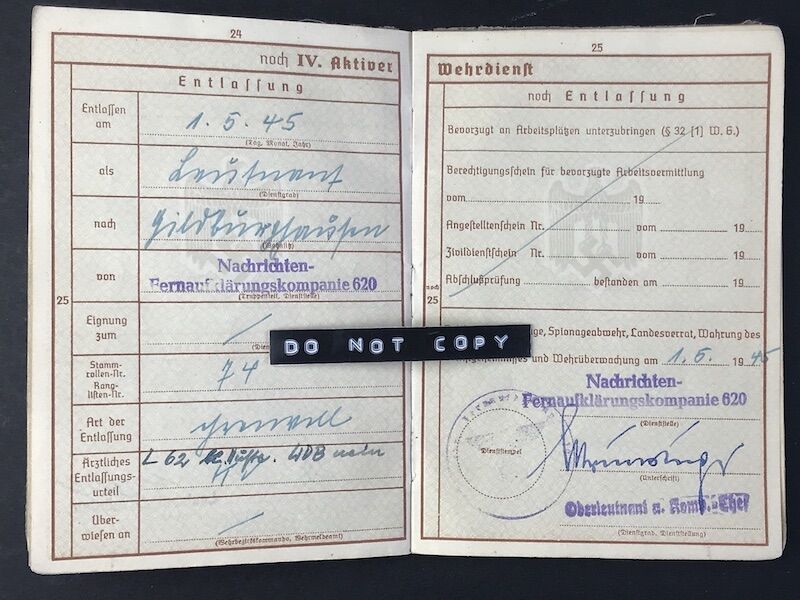 24
noch IV. Aktiver
Entlassung
Entlassen am
1. 5. 45
(Tag, Monat, Jahr)
als
Leutnant
(Dienstgrad)
nach
Hildburghausen
(Wohnsitz)
von
Nachrichten-
Fernaufklärungskompanie 620
(Truppenteil, Dienststelle)
25
Eignung zum
Stamm-
rollen-Nr.
Rang-
listen-Nr.
74
Art der Entlassung
Ärztliches
Entlassungs-
urteil
L 62
WDB nein
Über-
wiesen an
(Wehrbezirkskommando, Wehrmeldeamt)
DO NOT COPY
25
Wehrdienst
noch Entlassung
Bevorzugt an Arbeitsplätzen unterzubringen (§ 32 [1] W. G.)
Berechtigungsschein für bevorzugte Arbeitsvermittlung
vom 19
Angestelltenschein Nr. vom 19
Zivildienstschein Nr. vom 19
Abschlußprüfung bestanden am 19
noch
25
Spionageabwehr, Landesverrat, Wahrung des
und Wehrüberwachung am 1. 5. 1945
Nachrichten-
Fernaufklärungskompanie 620
(Dienststelle)
Dienststempel
(Unterschrift)
Oberleutnant u. Komp.-Chef
(Dienstgrad, Dienststellung)